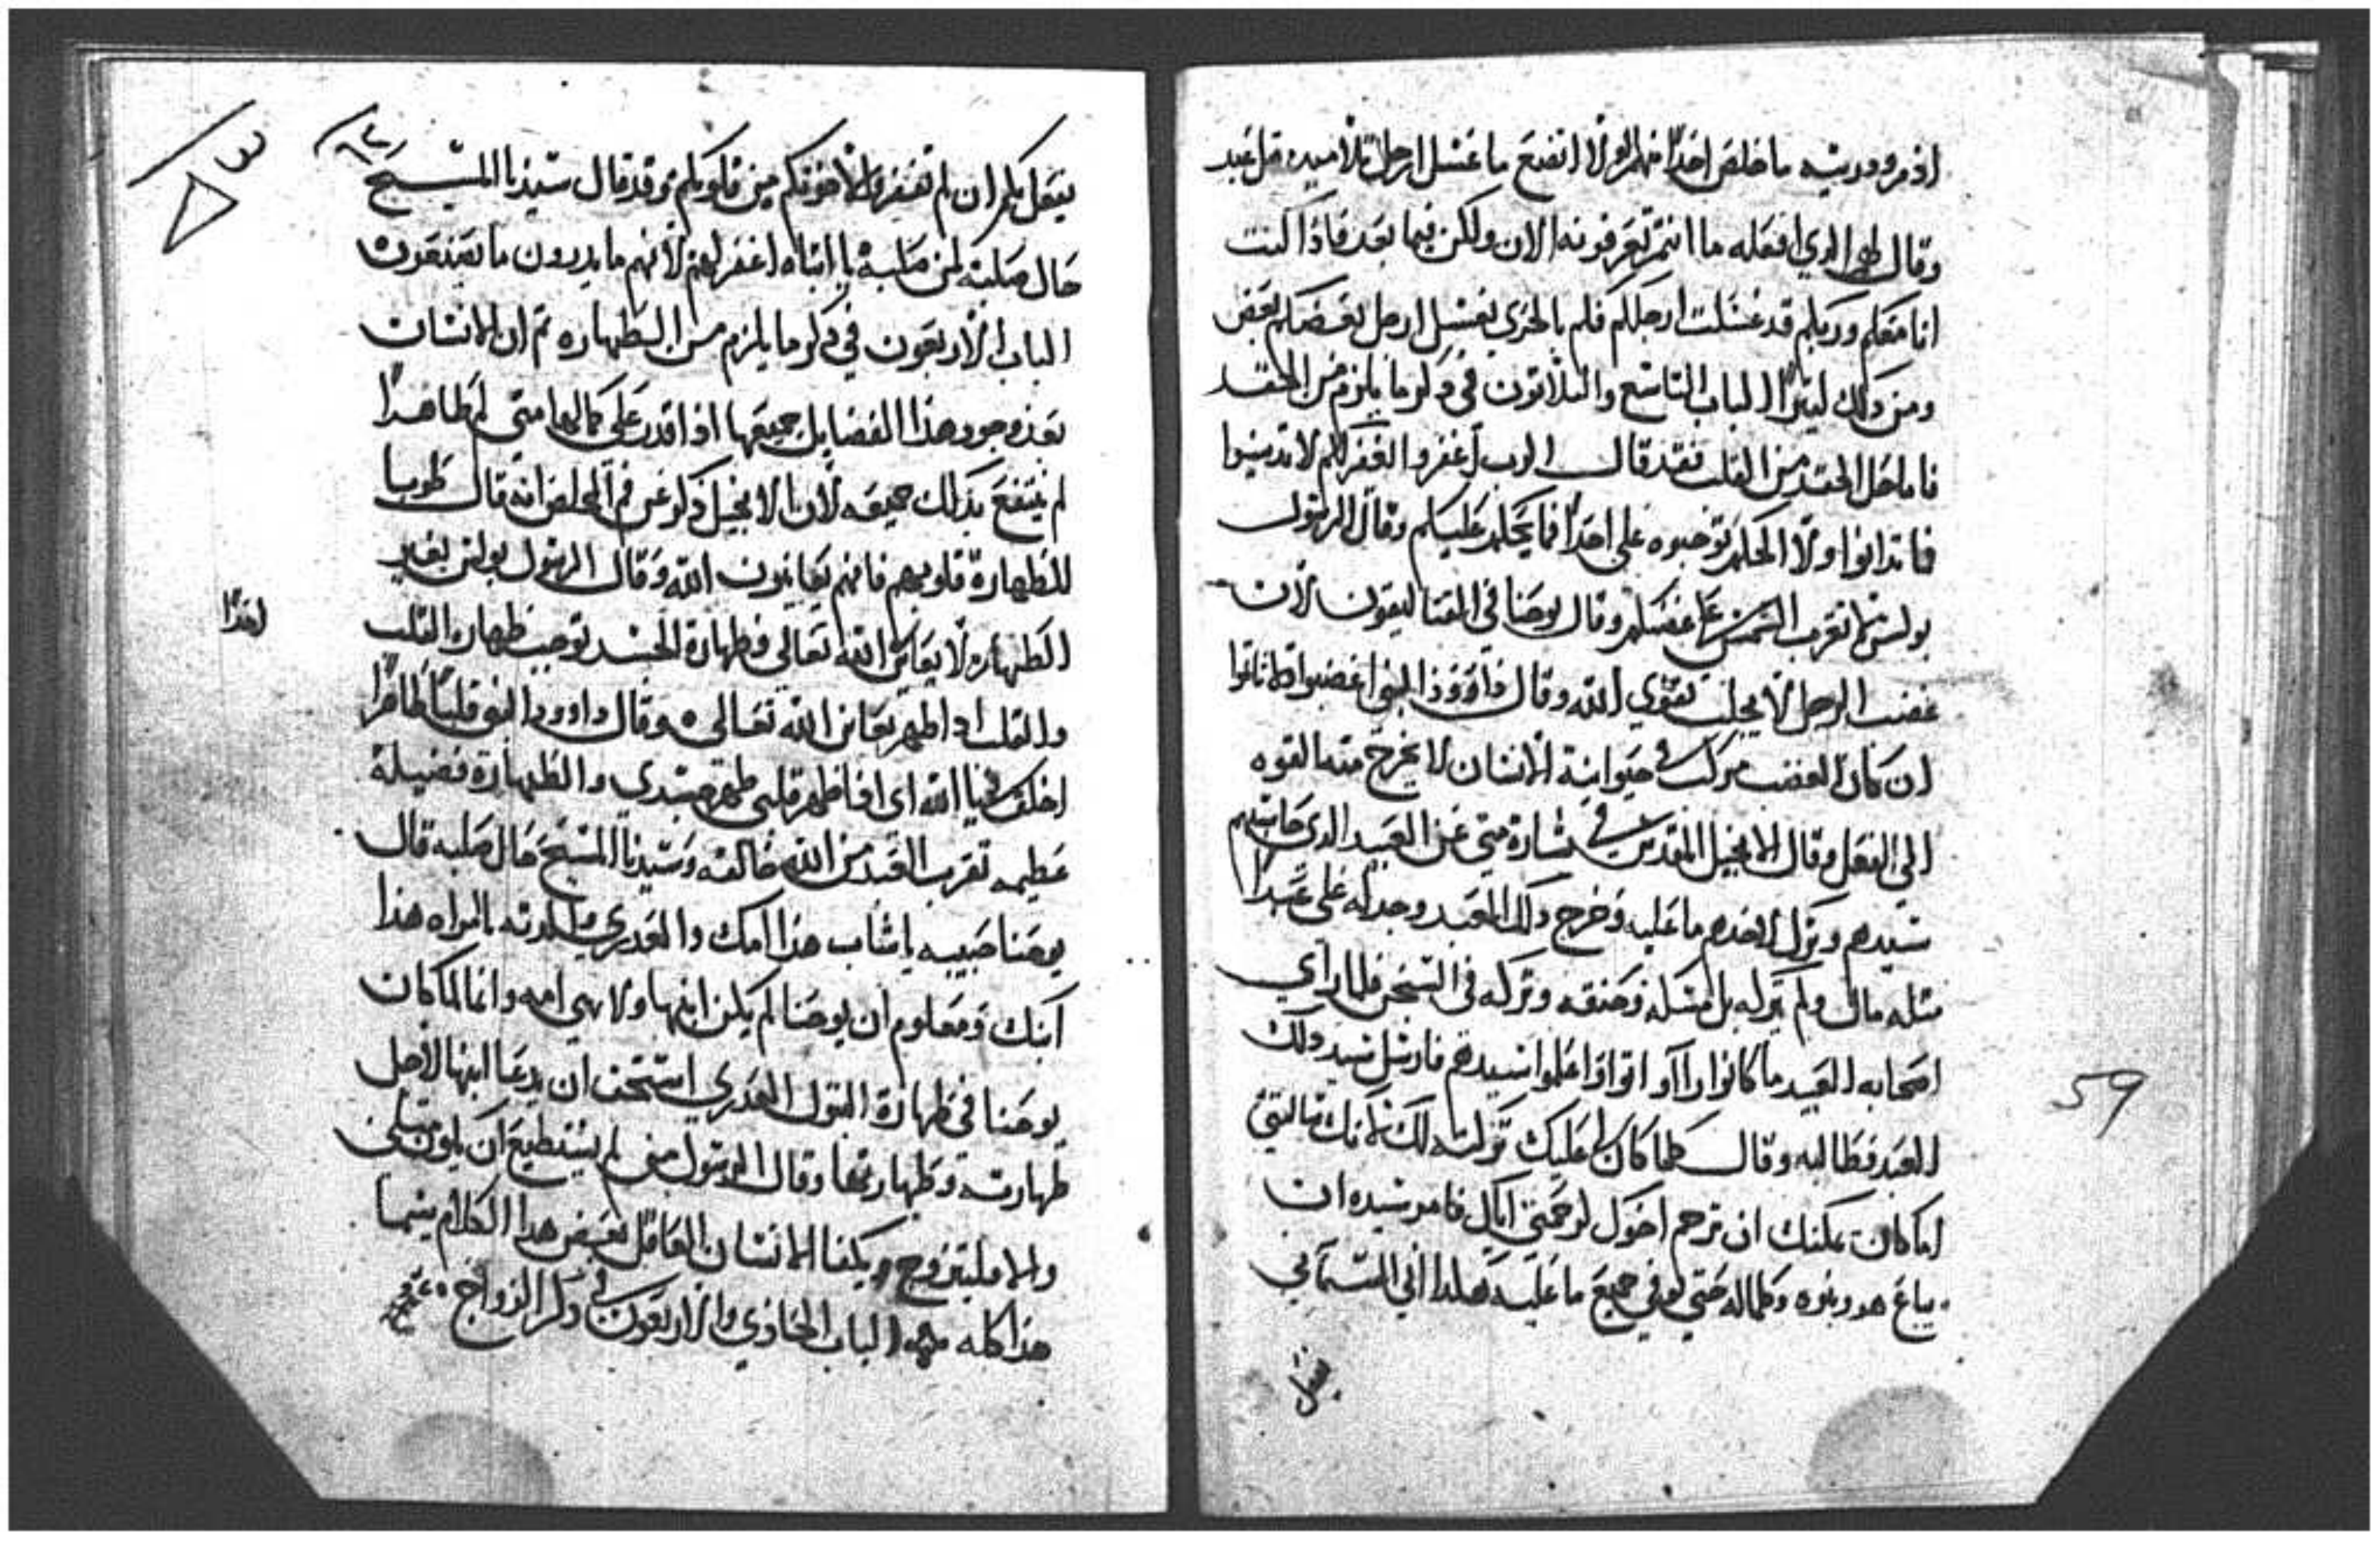 ادم ودريته ما خلص احدًا منهم ولولا اتضع ما غسل ارجل تلاميده قبل عيد
وقال لهم الدي افعله ما انتم تعرفونه الان ولكن فيما بعد فاذا كنت
انا معلم وربكم قد غسلت ارجلكم فكم بالحري يغسل ارجل بعضكم بعض
ومن دلك كتيرًا الباب التاسع والتلاتون في دكر ما يلزم من الحقد
فاما حل الحقد من القلب فقد قال الرب اغفروا لتغفر لكم لا تدينوا
فما تدانوا ولا الحكم توجبوه على احدًا فما يحكم عليكم وقال الرسول
بولس لا تغرب الشمس على غضبكم وقال يوحنا في القتاليقون لان
غضب الرجل لا يجلب تقوي الله وقال داوود النبي اغضبوا ولا تاتموا
ان كان الغضب مركب في حيوانية الانسان لا يخرج منه القوه
الي الفعل وقال الانجيل المقدس في بشارة متى عن العبيد الدي حاسبهم
سيدهم وترك لاحدهم ما عليه وخرج دلك العبد وجد له على عبدًا
متله مال ولم يتركه بل مسكه وخنقه وتركه في السجن فلما راي
اصحابه العبيد ما كانوا راآو اتوا واعلموا سيدهم فارسل سيد دلك
العبد فطالبه وقال كلما كان لي عليك تركته لك لانك سالتني
اما كان يمكنك ان ترحم اخوك لرحمتي اياك فامر سيده ان
يباع هو وبنوه وكلما له حتى يوفي جميع ما عليه هكدا ابي السمآئي
يفعل
59
يفعل بكم ان لم تغفروا لاخوتكم من قلوبكم وقد قال سيدنا المسيح
حال صلبته لمن صلبه يا ابتاه اغفر لهم لانهم ما يدرون ما يصنعون
الباب الاربعون في دكر ما يلزم من الطهاره تم ان الانسان
بعد وجود هذا الفضايل جميعها اذا قدر على كمالها متي لم طاهرًا
لم ينتفع بذلك جميعه لان بالانجيل ذكر عن فم المخلص انه قال طوبا
للطهارة قلوبهم فانهم يعاينون الله وقال الرسول بولس بغير
الطهاره لا يعاين الله تعالي فطهارة الجسد توجب طهاره القلب
احدًا
والقلب ادا طهر يعاين الله تعالى وقال داوود النبي قلبًا طاهرًا
اخلق في يا الله اي اذا طهر قلبي طهر جسدي والطهارة فضيلة
عظيمه تقرب العبد من الله خالقه وسيدنا المسيح حال صلبه قال
يوحنا حبيبه يا شاب هذا امك والعدري والدته يا امراه هذا
ابنك ومعلوم ان يوحنا لم يكن ابنها ولا هي امه وانما لما كان
يوحنا في طهارة البتول العدري استحق ان يدعا ابنها لاجل
طهارته وطهارتها وقال الرسول من لم يستطيع ان يكون متلي
والا فليتزوج ويكفا الانسان العاقل بعض هدا الكلام يسما
هذا كله الباب الحادي والاربعون في دكر الزواج